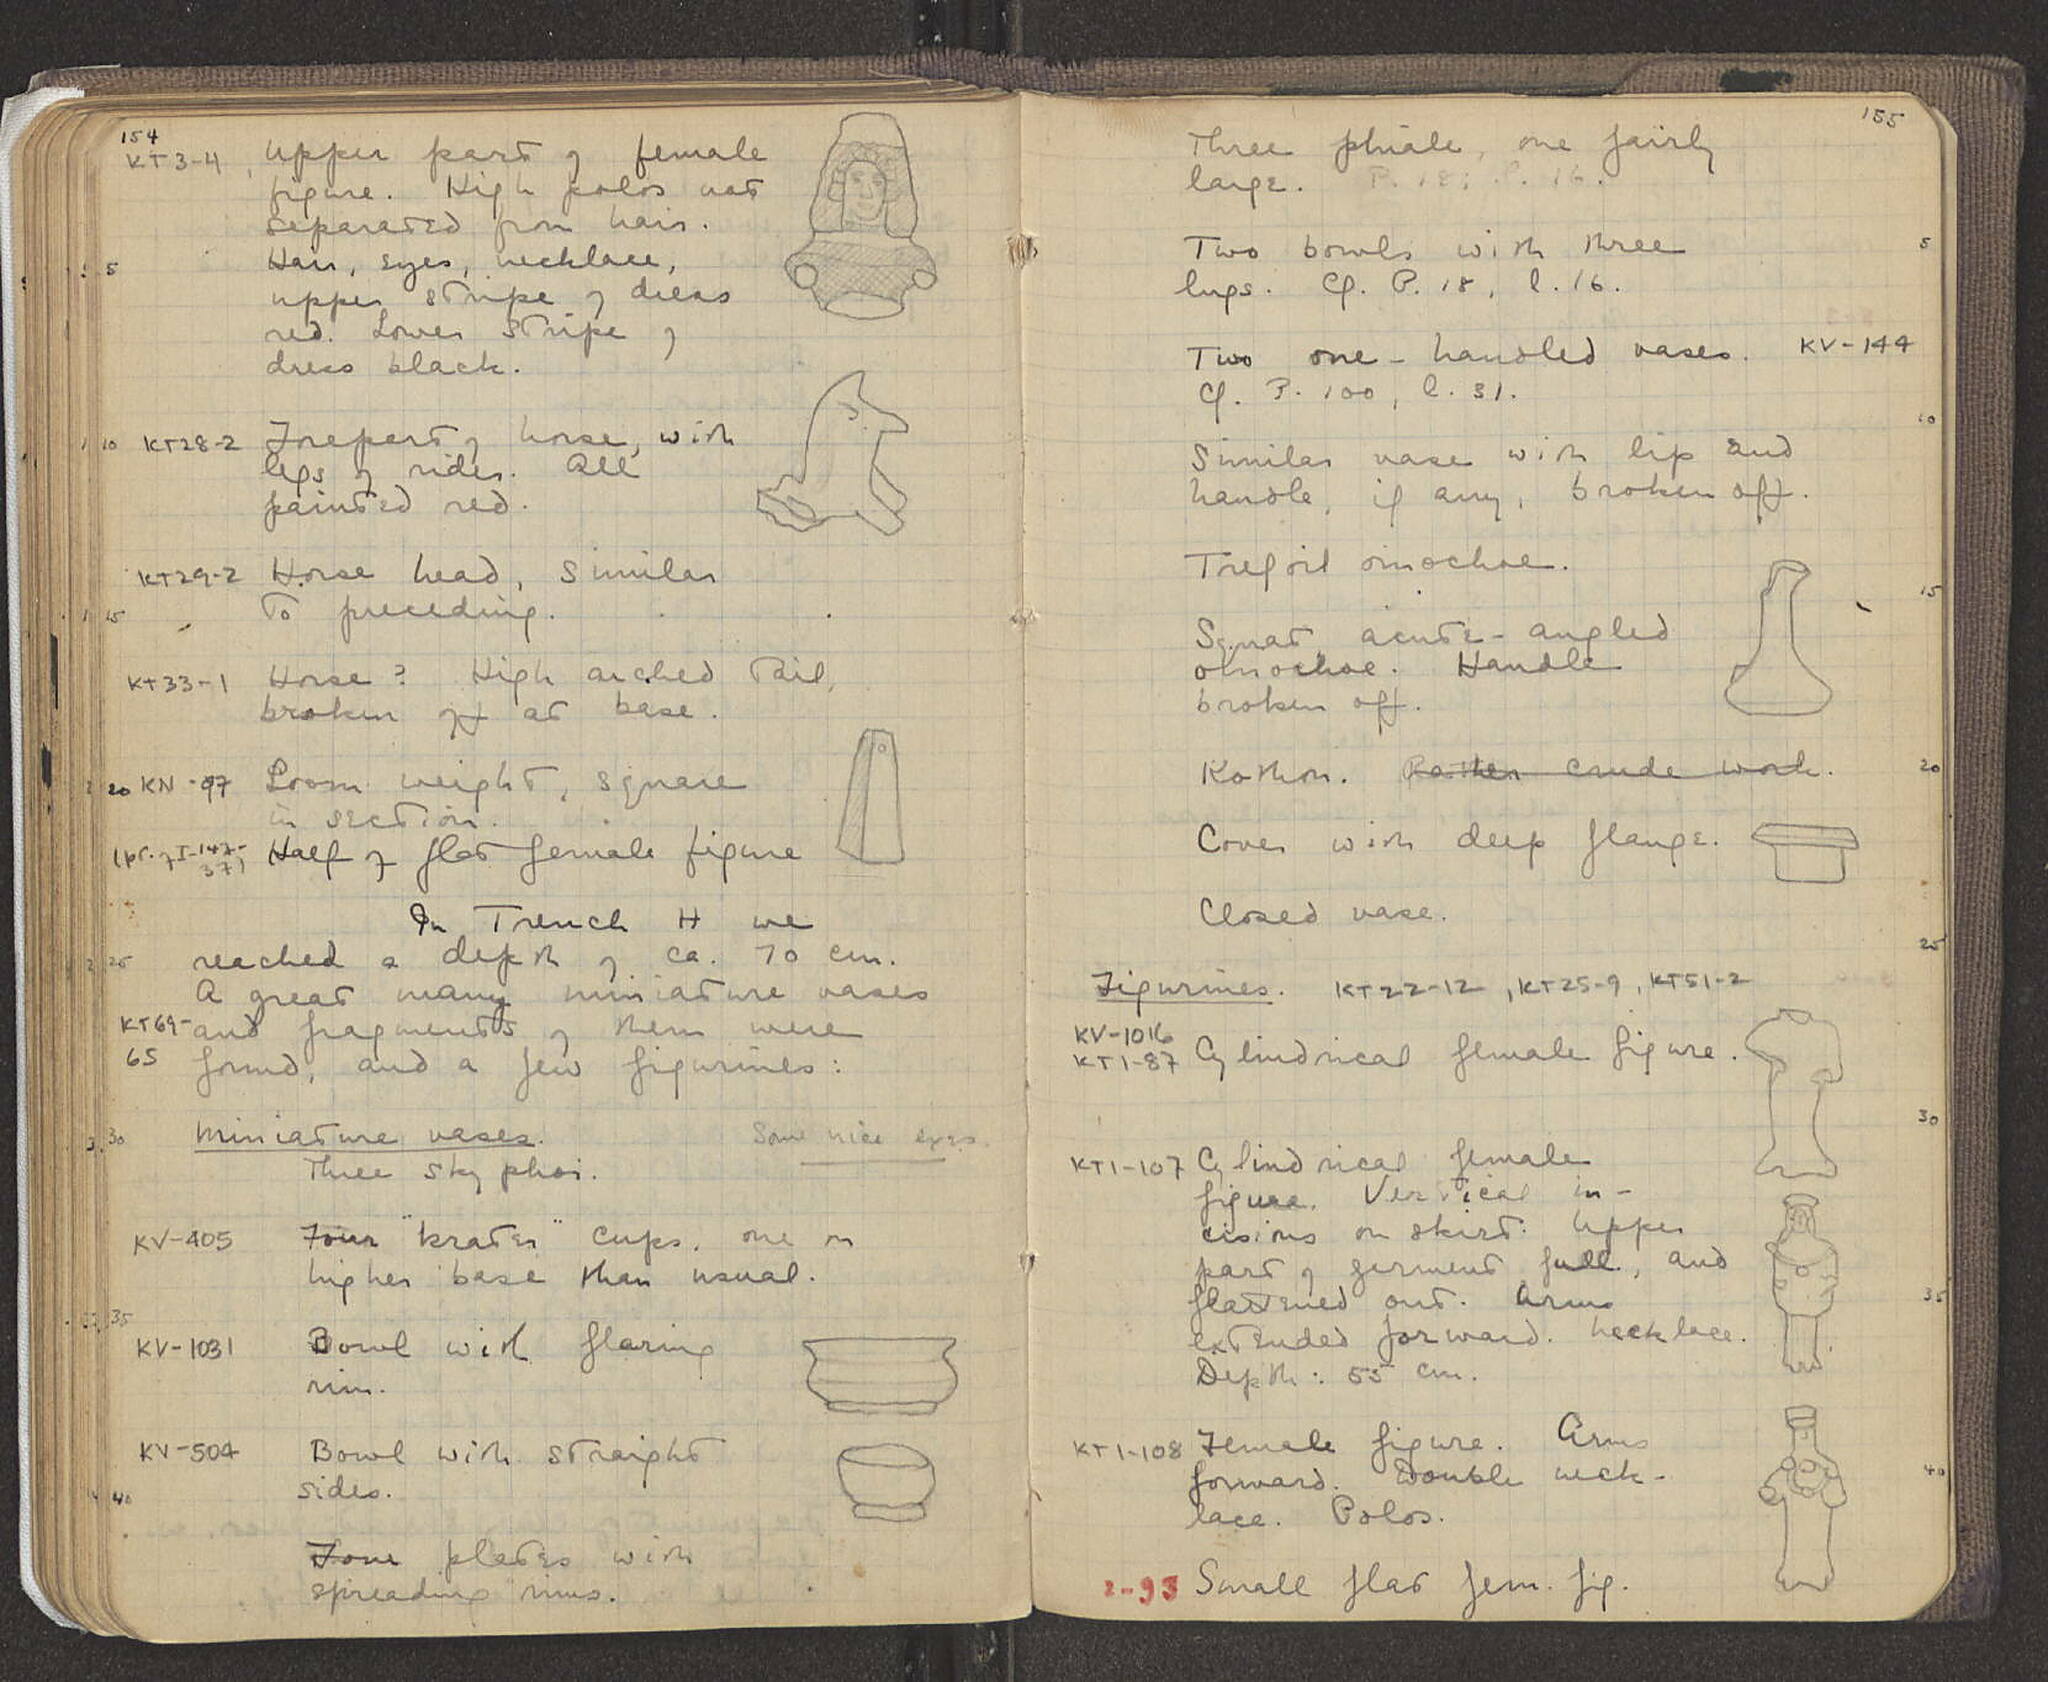 154
KT3-4, Upper part of female
figure. High polos not
separated from hair.
5 Hair, eyes, necklace,
upper stripe of dress
red. Lower stripe of
dress black.
10 KT28-2 Forepart of horse, with
legs of rider. All
painted red.
KT29-2 Horse head, similar
15 to preceding.
KT33-1 Horse? High arched tail,
broken off at base.
20 KN-97 Loom weight, square
in section.
(pt. of I-147-37) Half of flat female figure
In Trench H we
25 reached a depth of ca. 70 cm.
A great many miniature vases
KT69-65 and fragments of them were
found, and a few figurines:
30 Miniature vases. Some nice exx.
Three skyphoi.
KV-405 Four "krater" cups, one on
higher base than usual.
35
KV-1031 Bowl with flaring
rim.
KV-504 Bowl with straight
40 sides.
Four plates with
spreading rims.
155
Three phiale, one fairly
large. P. 18, l. 16.
5 Two bowls with three
lugs. Cf. P. 18, l. 16.
Two one-handled vases. KV-144
Cf. P. 100, l. 31.
10
Similar vase with lip and
handle, if any, broken off.
Trefoil oinochoe.
15
Squat acute-angled
oinochoe. Handle
broken off.
20 Kothon. Rather crude work.
Cover with deep flange.
Closed vase.
25
Figurines. KT22-12, KT25-9, KT51-2
KV-1016
KT1-87 Cylindrical female figure.
30
KT1-107 Cylindrical female
figure. Vertical in-
cisions on skirt. Upper
part of garment full, and
35 flattened out. Arms
extended forward. Necklace.
Depth: 55 cm.
KT1-108 Female figure. Arms
40 forward. Double neck-
lace. Polos.
2-93 Small flat fem. fig.